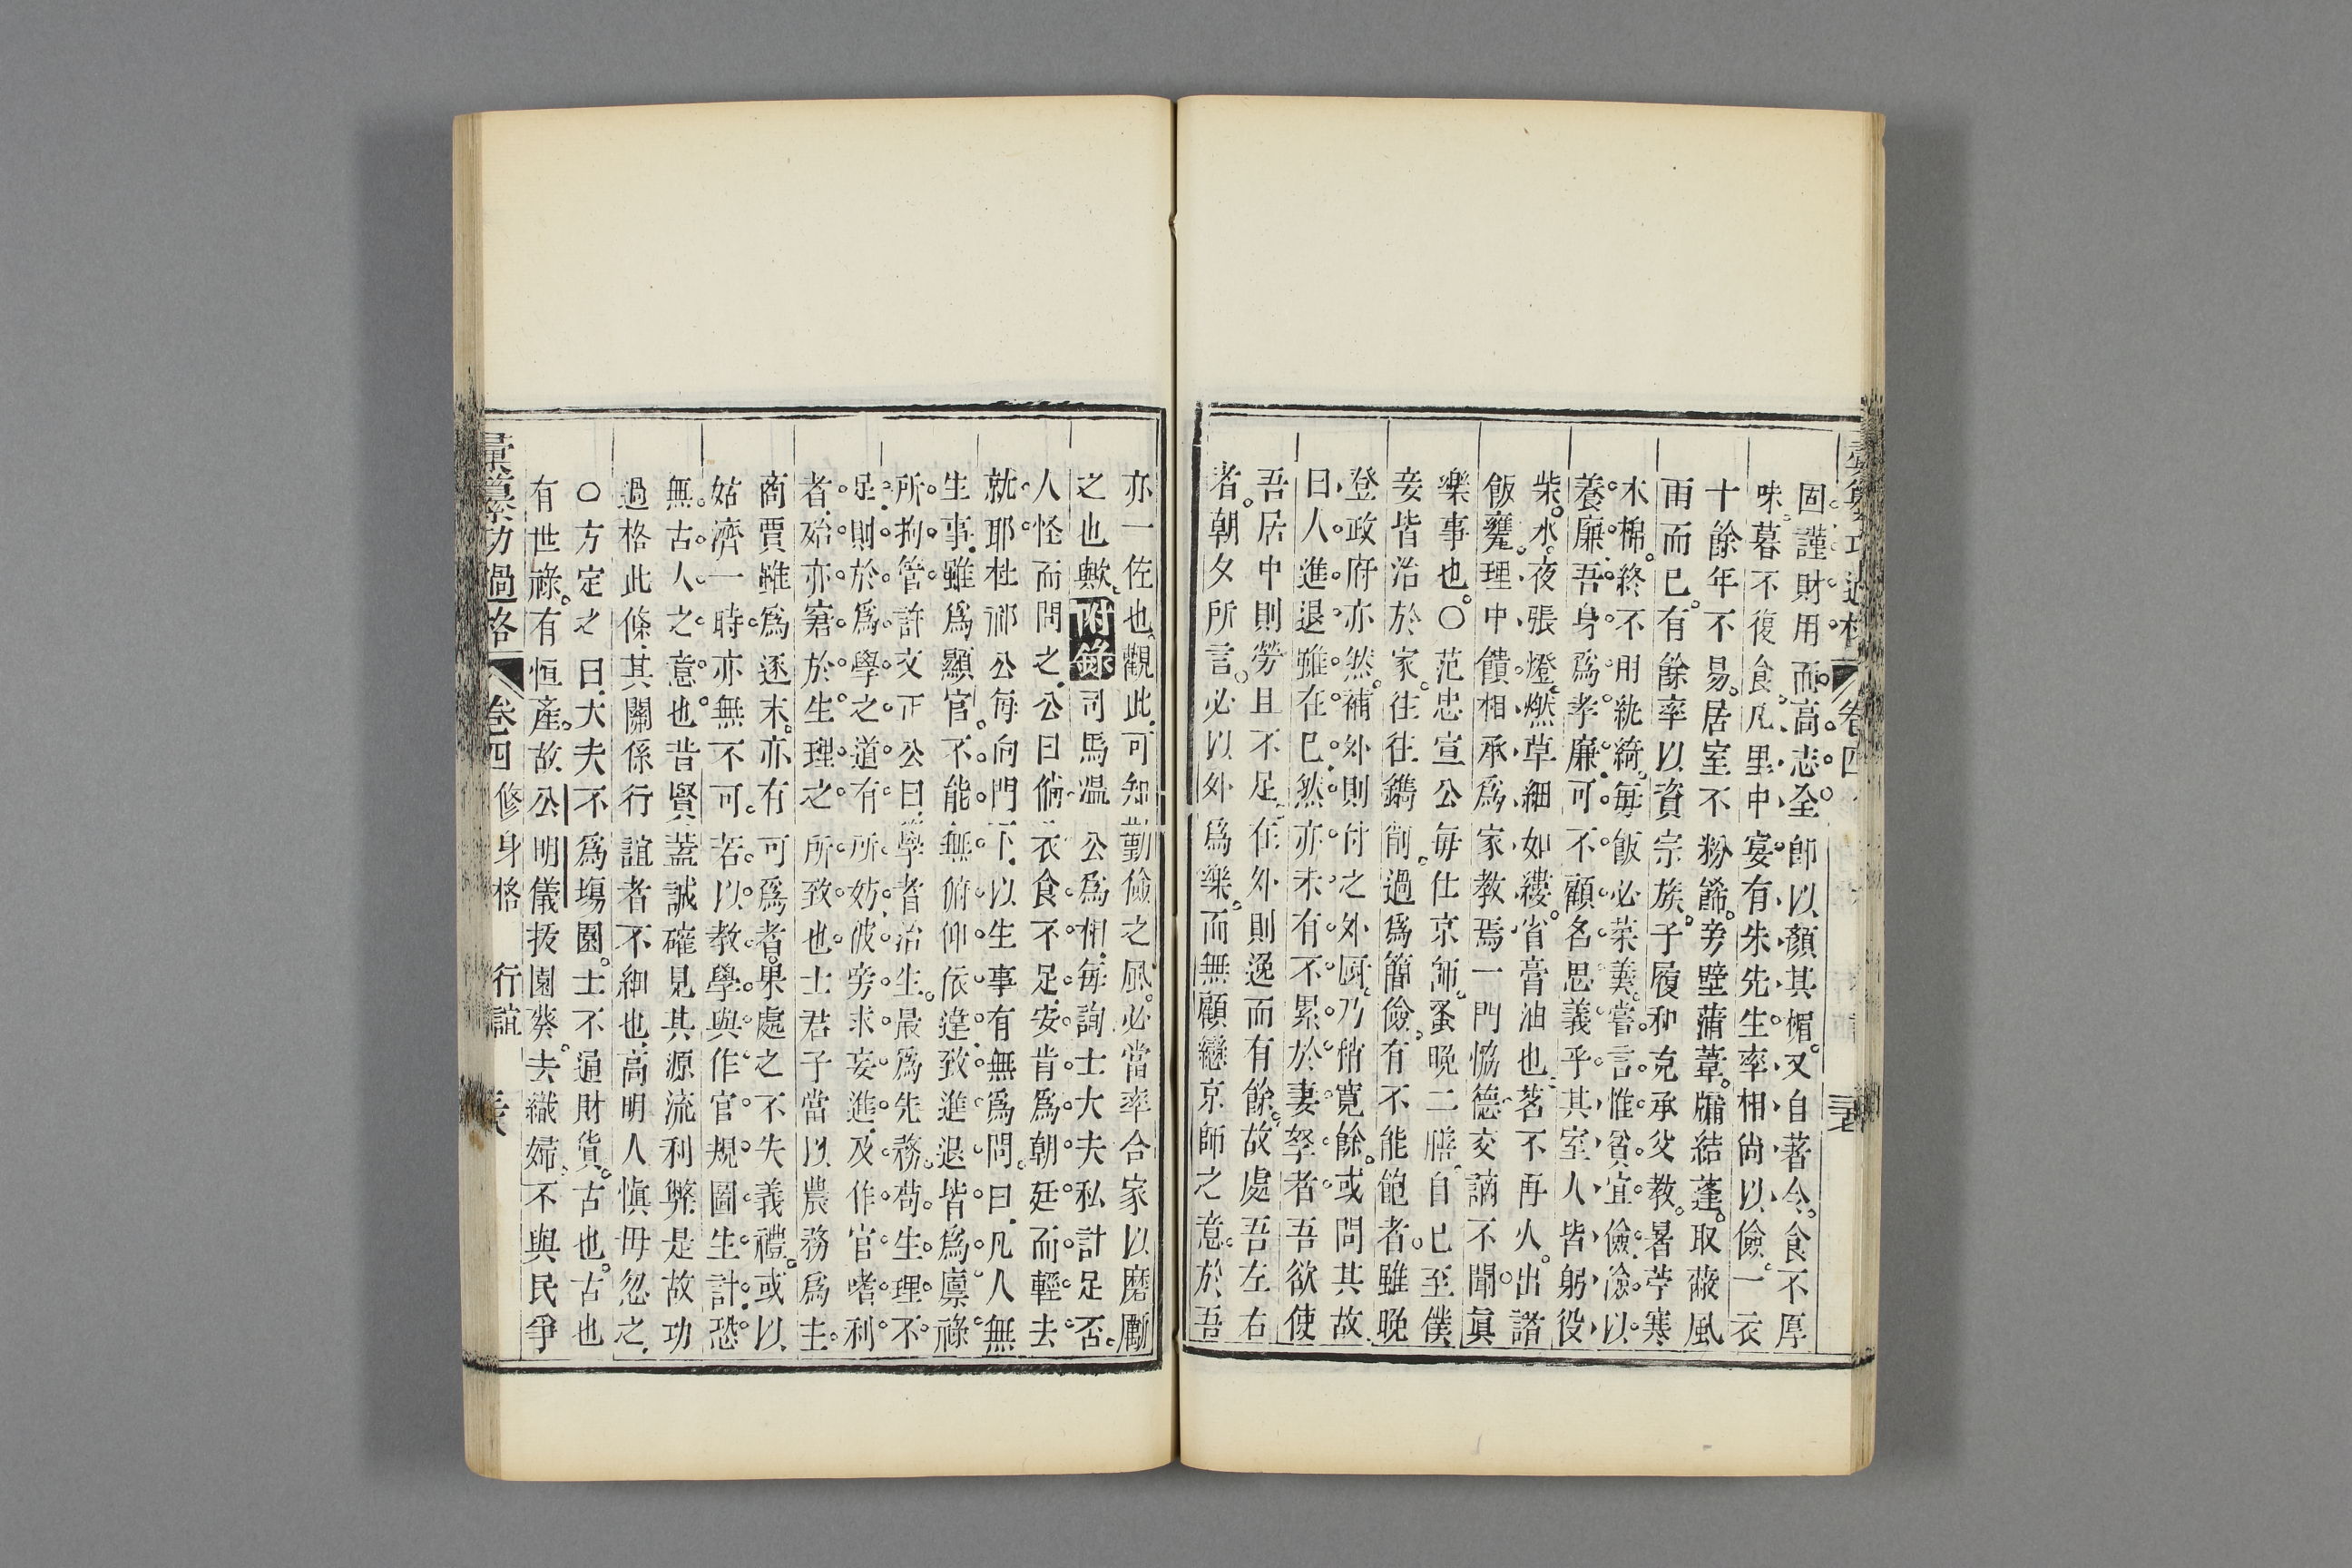 彙纂功過格 卷四 三七
固謹財用而高志全節以顏其楣又自著令食不厚
味暮不復食凡里中宴有朱先生率相尚以儉一衣
十餘年不易居室不粉餙旁壁蒲葦牖結蓬取蔽風
雨而已有餘率以資宗族子履和克承父教暑苧寒
木棉終不用紈綺每飯必菜羹嘗言惟貧宜儉儉以
養廉吾身為孝廉可不顧名思義乎其室人皆躬役
柴水夜張燈燃草細如縷省膏油也茗不再火出諧
飯甕理中饋相承為家教焉一門恊德交謫不聞眞
樂事也〇范忠宣公每仕京師蚤晚二膳自已至僕
妾皆治於家往往鐫削過為簡儉有不能飽者雖晚
登政府亦然補外則付之外厨乃稍寬餘或問其故
曰人進退雖在已然亦未有不累於妻孥者吾欲使
吾居中則勞且不足在外則逸而有餘故處吾左右
者朝夕所言必以外為樂而無顧戀京師之意於吾
亦一佐也觀此可知勤儉之風必當率合家以磨勵
之也歟附錄司馬溫公為相每詢士大夫私計足否
人怪而問之公曰倘衣食不足安肯為朝廷而輕去
就耶杜祁公每向門下以生事有無為問曰凡人無
生事雖為顯官不能無俯仰依違致進退皆為廪祿
所拘管許文正公曰學者治生最為先務苟生理不
足則於為學之道有所妨彼旁求妄進及作官嗜利
者殆亦窘於生理之所致也士君子當以農務為主
商賈雖為逐末亦有可為者果處之不失義禮或以
姑濟一時亦無不可若以教學與作官規圖生計恐
無古人之意也昔賢蓋誠確見其源流利弊是故功
過格此條其關係行誼者不細也高明人愼毋忽之
〇方定之曰大夫不為塲圃士不通財貨古也古也
有世祿有恒產故公明儀抜園葵去織婦不與民爭
彙纂功過格 卷四 修身格 行誼 三八